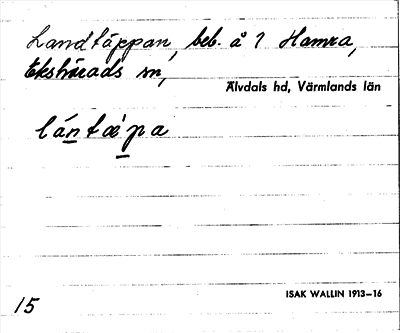 Landtäppan, beb. å 7 Hamra,
Ekshärads sn,
Älvdals hd, Värmlands län
lántǽpa
ISAK WALLIN 1913–16
15